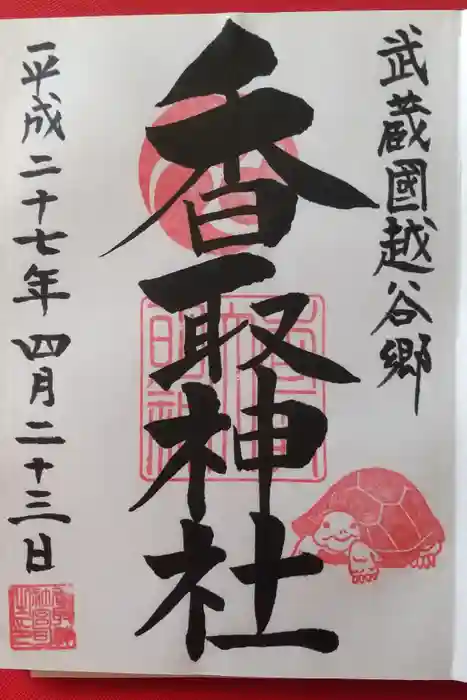 武蔵國越谷郷
香取神社
平成二十七年四月二十三日